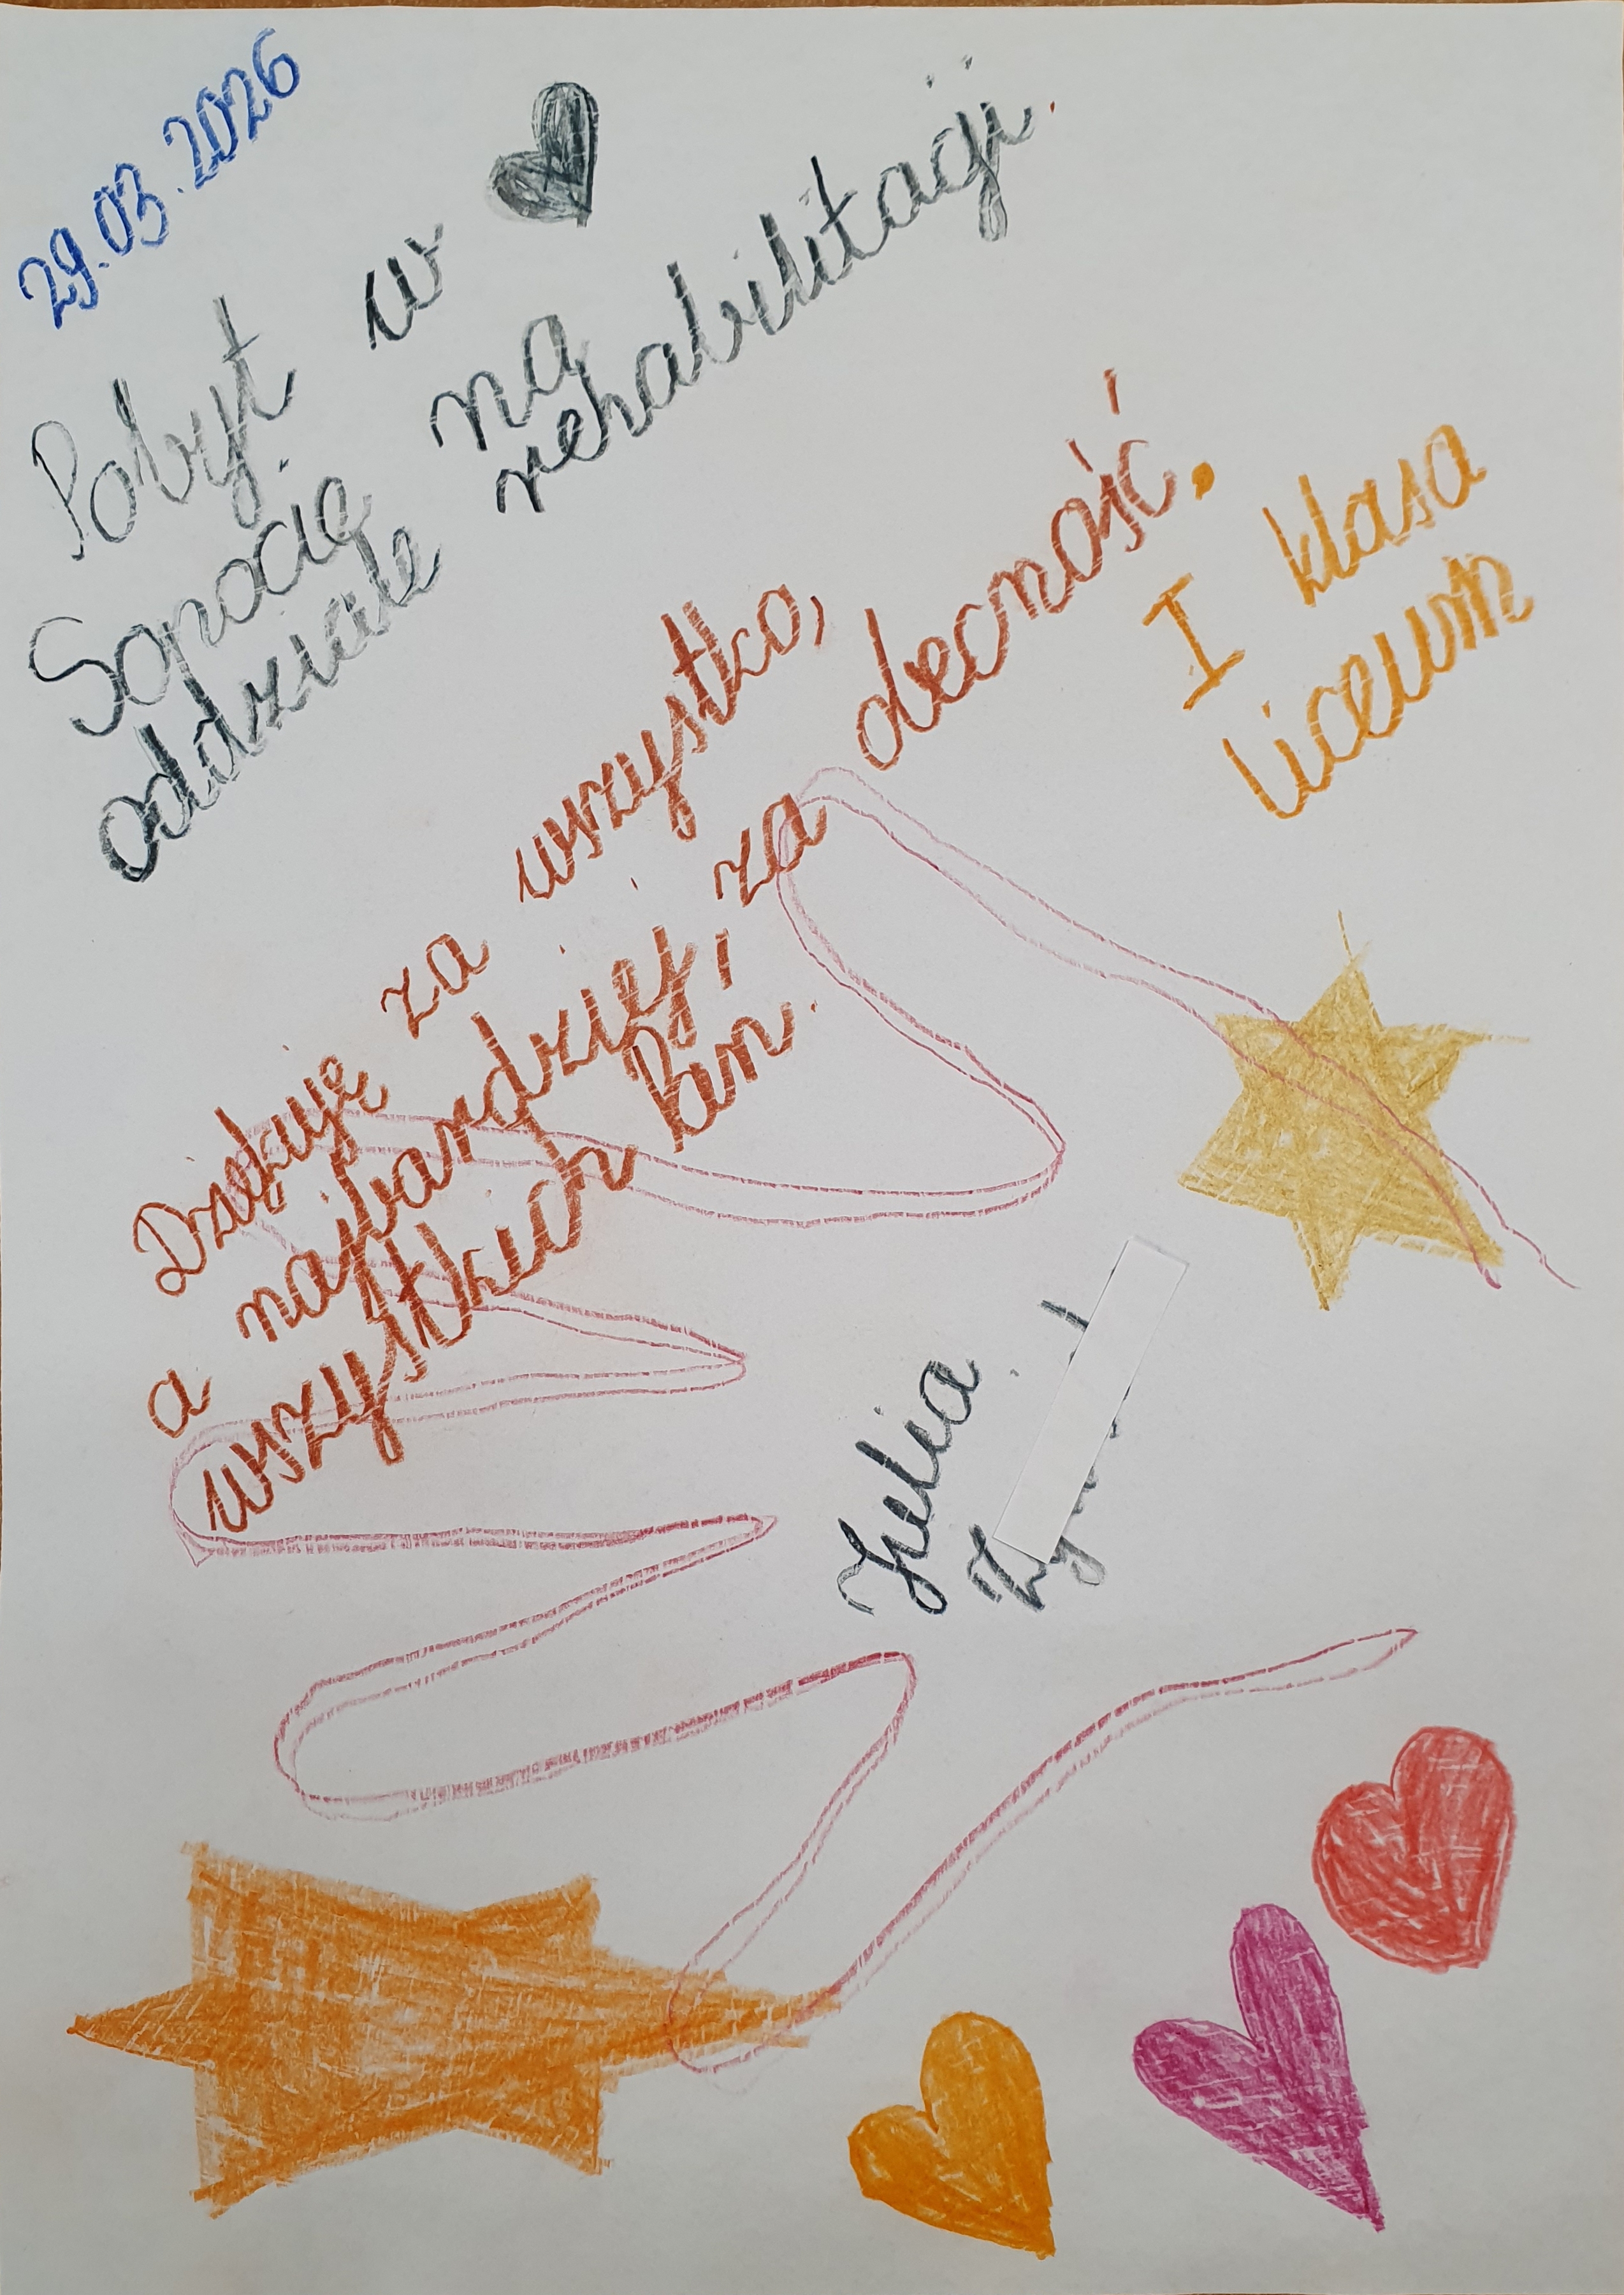 29.03.2026
Pobyt w
Sopocie na
oddziale rehabilitacji.
Dziękuję za wszystko,
a najbardziej, za obecność,
wszystkich Pan.
I klasa
liceum
Julia